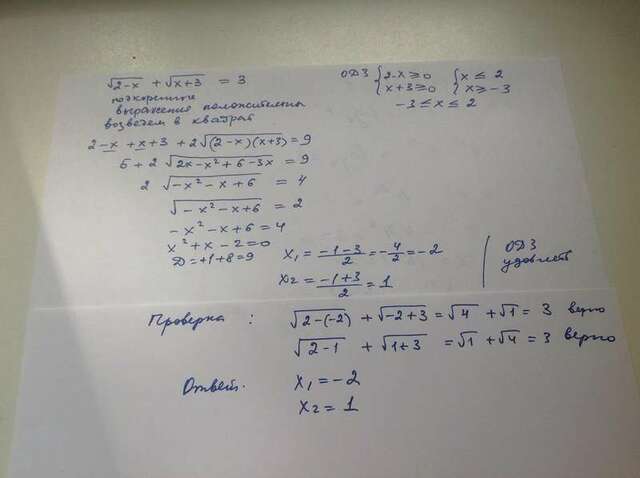 √(2-x) + √(x+3) = 3
подкоренные
выражения положительны
возведем в квадрат
ОДЗ { 2-x ≥ 0 { x ≤ 2
x+3 ≥ 0 x ≥ -3
-3 ≤ x ≤ 2
2-x + x+3 + 2√((2-x)(x+3)) = 9
5 + 2√(2x-x²+6-3x) = 9
2√(-x²-x+6) = 4
√(-x²-x+6) = 2
-x²-x+6 = 4
x²+x-2=0
D=+1+8=9
x₁ = (-1-3)/2 = -4/2 = -2
x₂ = (-1+3)/2 = 1
ОДЗ
удовлет
Проверка : √(2-(-2)) + √(-2+3) = √4 + √1 = 3 верно
√(2-1) + √(1+3) = √1 + √4 = 3 верно
Ответ. x₁ = -2
x₂ = 1